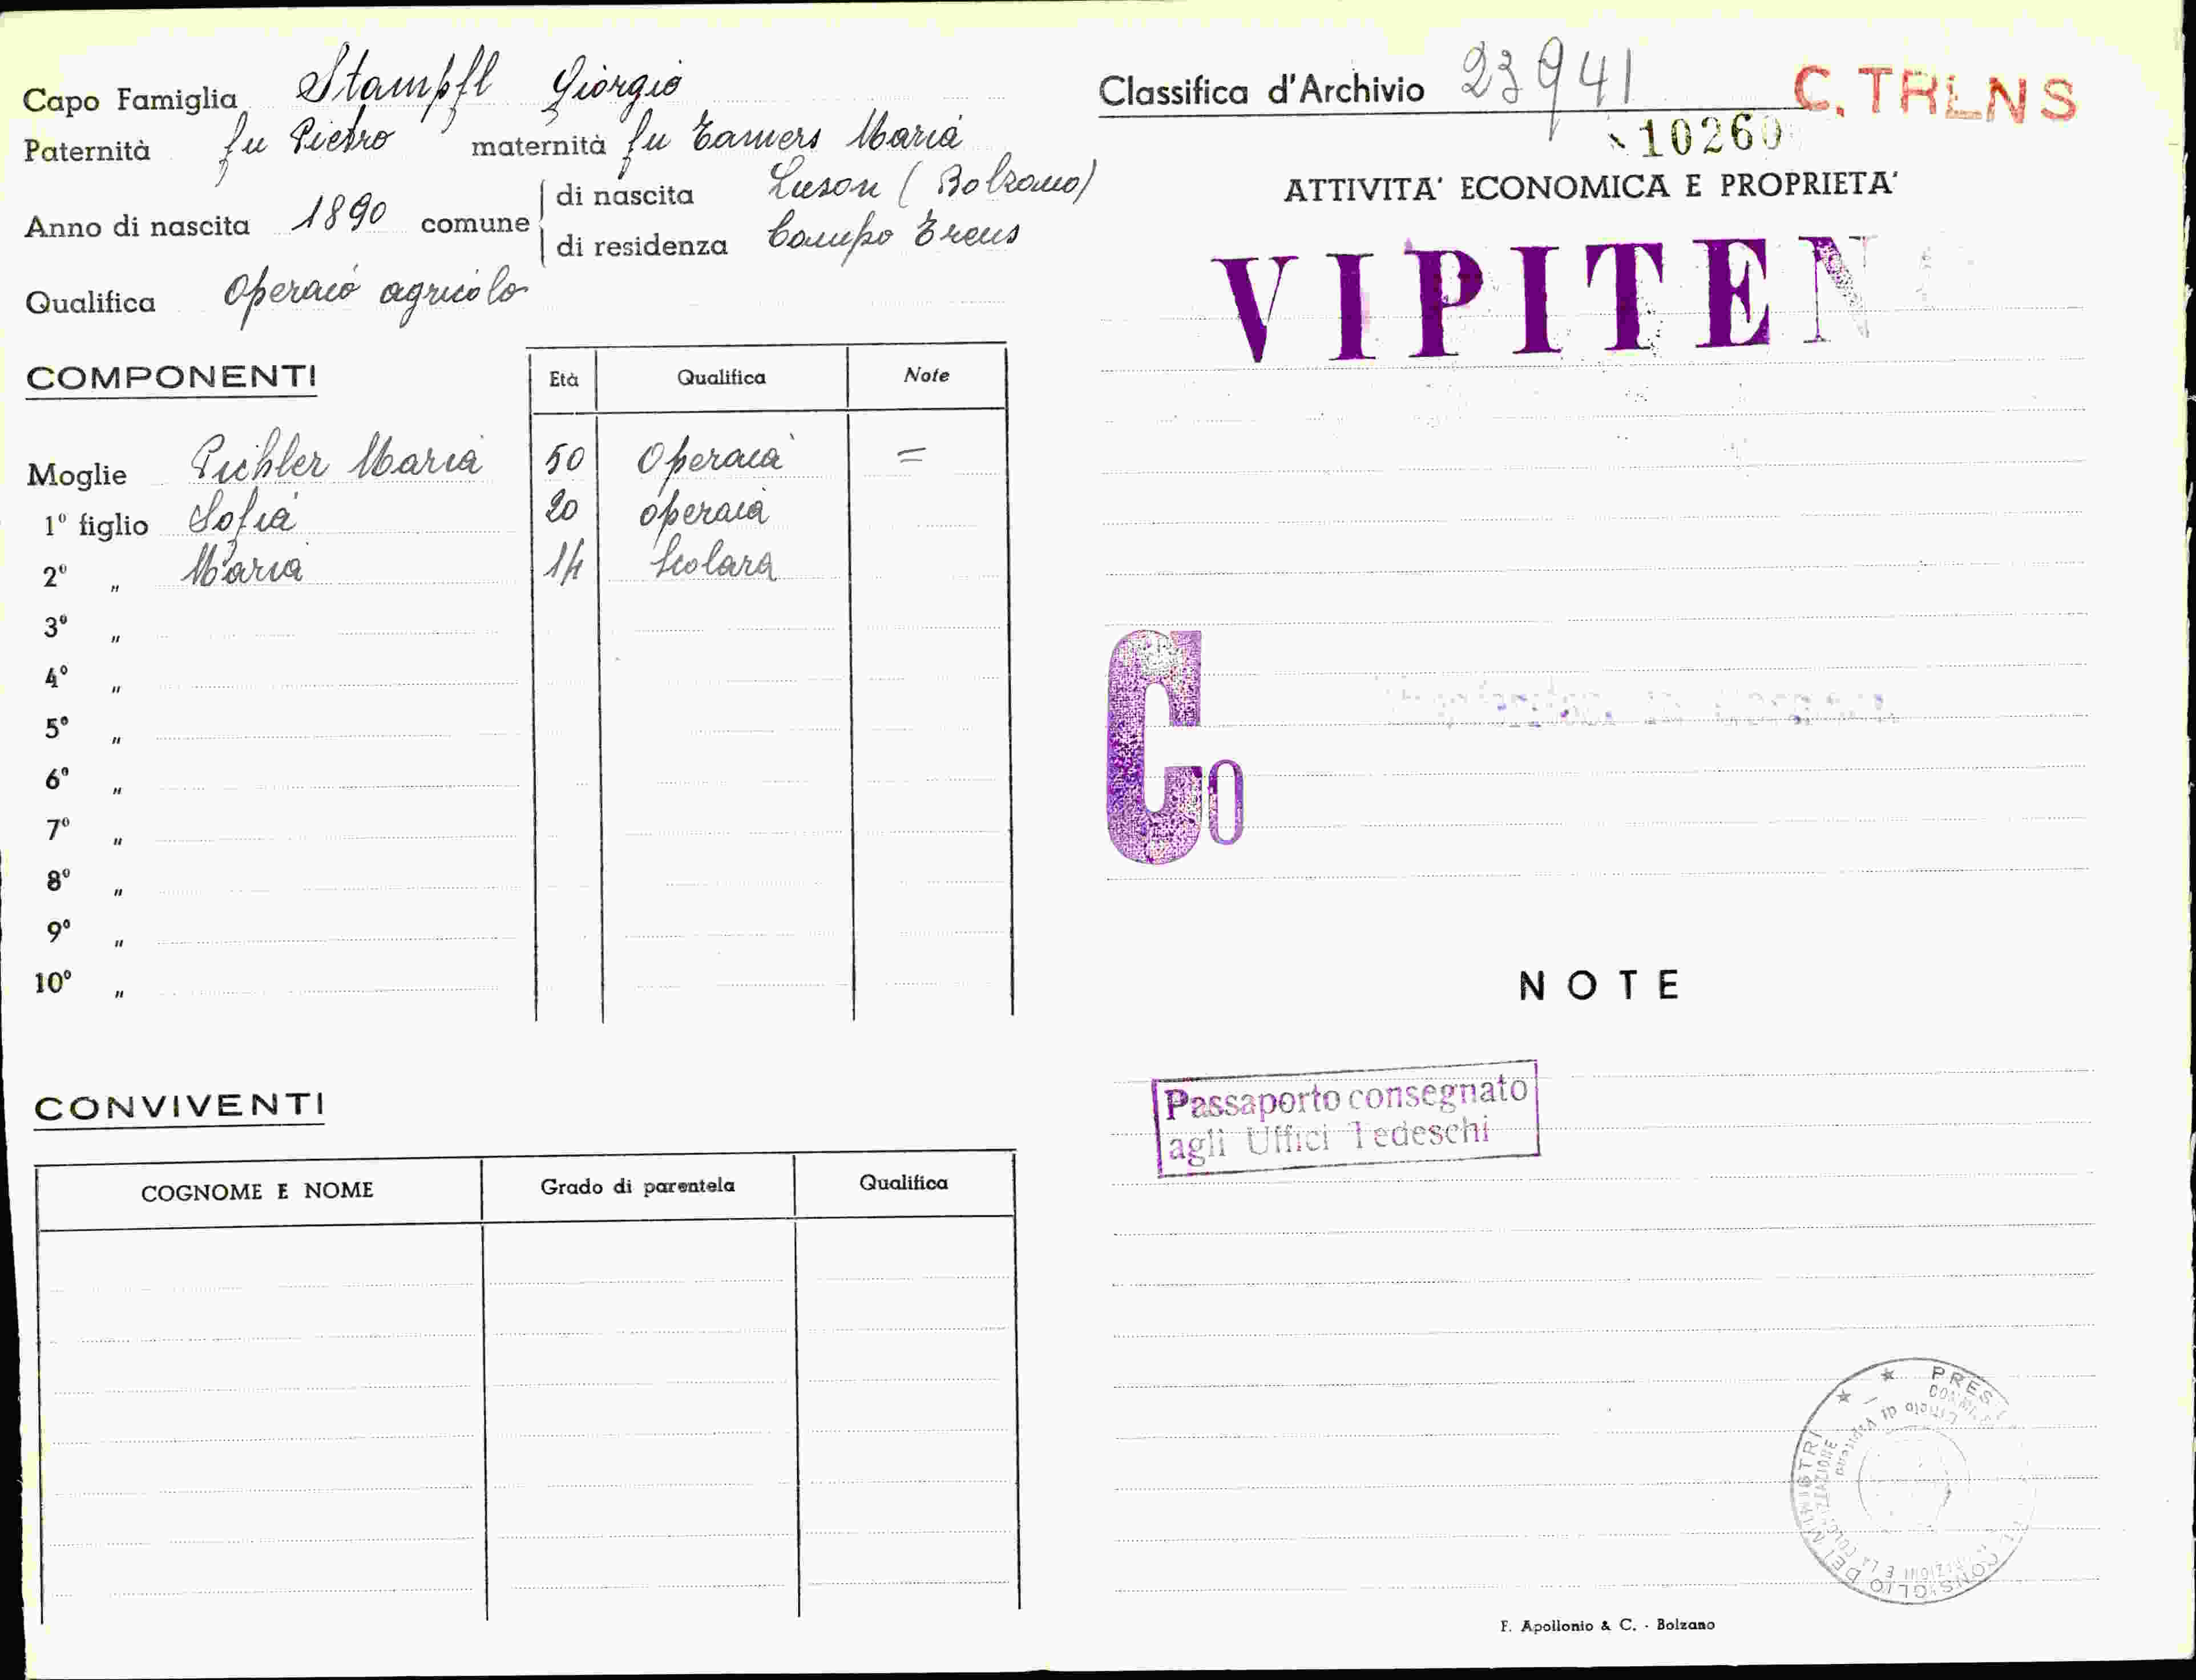 Capo Famiglia Stampfl Giorgio
Paternità fu Pietro maternità fu Tamers Maria
Anno di nascita 1890 comune di nascita Luson (Bolzano)
di residenza Campo Trens
Qualifica Operaio agricolo
COMPONENTI Età Qualifica Note
Moglie Pichler Maria 50 Operaia =
1º figlio Sofia 20 operaia
2º „ Maria 14 Scolara
3º „
4º „
5º „
6º „
7º „
8º „
9º „
10º „
CONVIVENTI
COGNOME E NOME Grado di parentela Qualifica
Classifica d'Archivio 23941 C. TRENS
10260
ATTIVITA' ECONOMICA E PROPRIETA'
VIPITEN
Co
NOTE
Passaporto consegnato
agli Uffici Tedeschi
F. Apollonio & C. - Bolzano